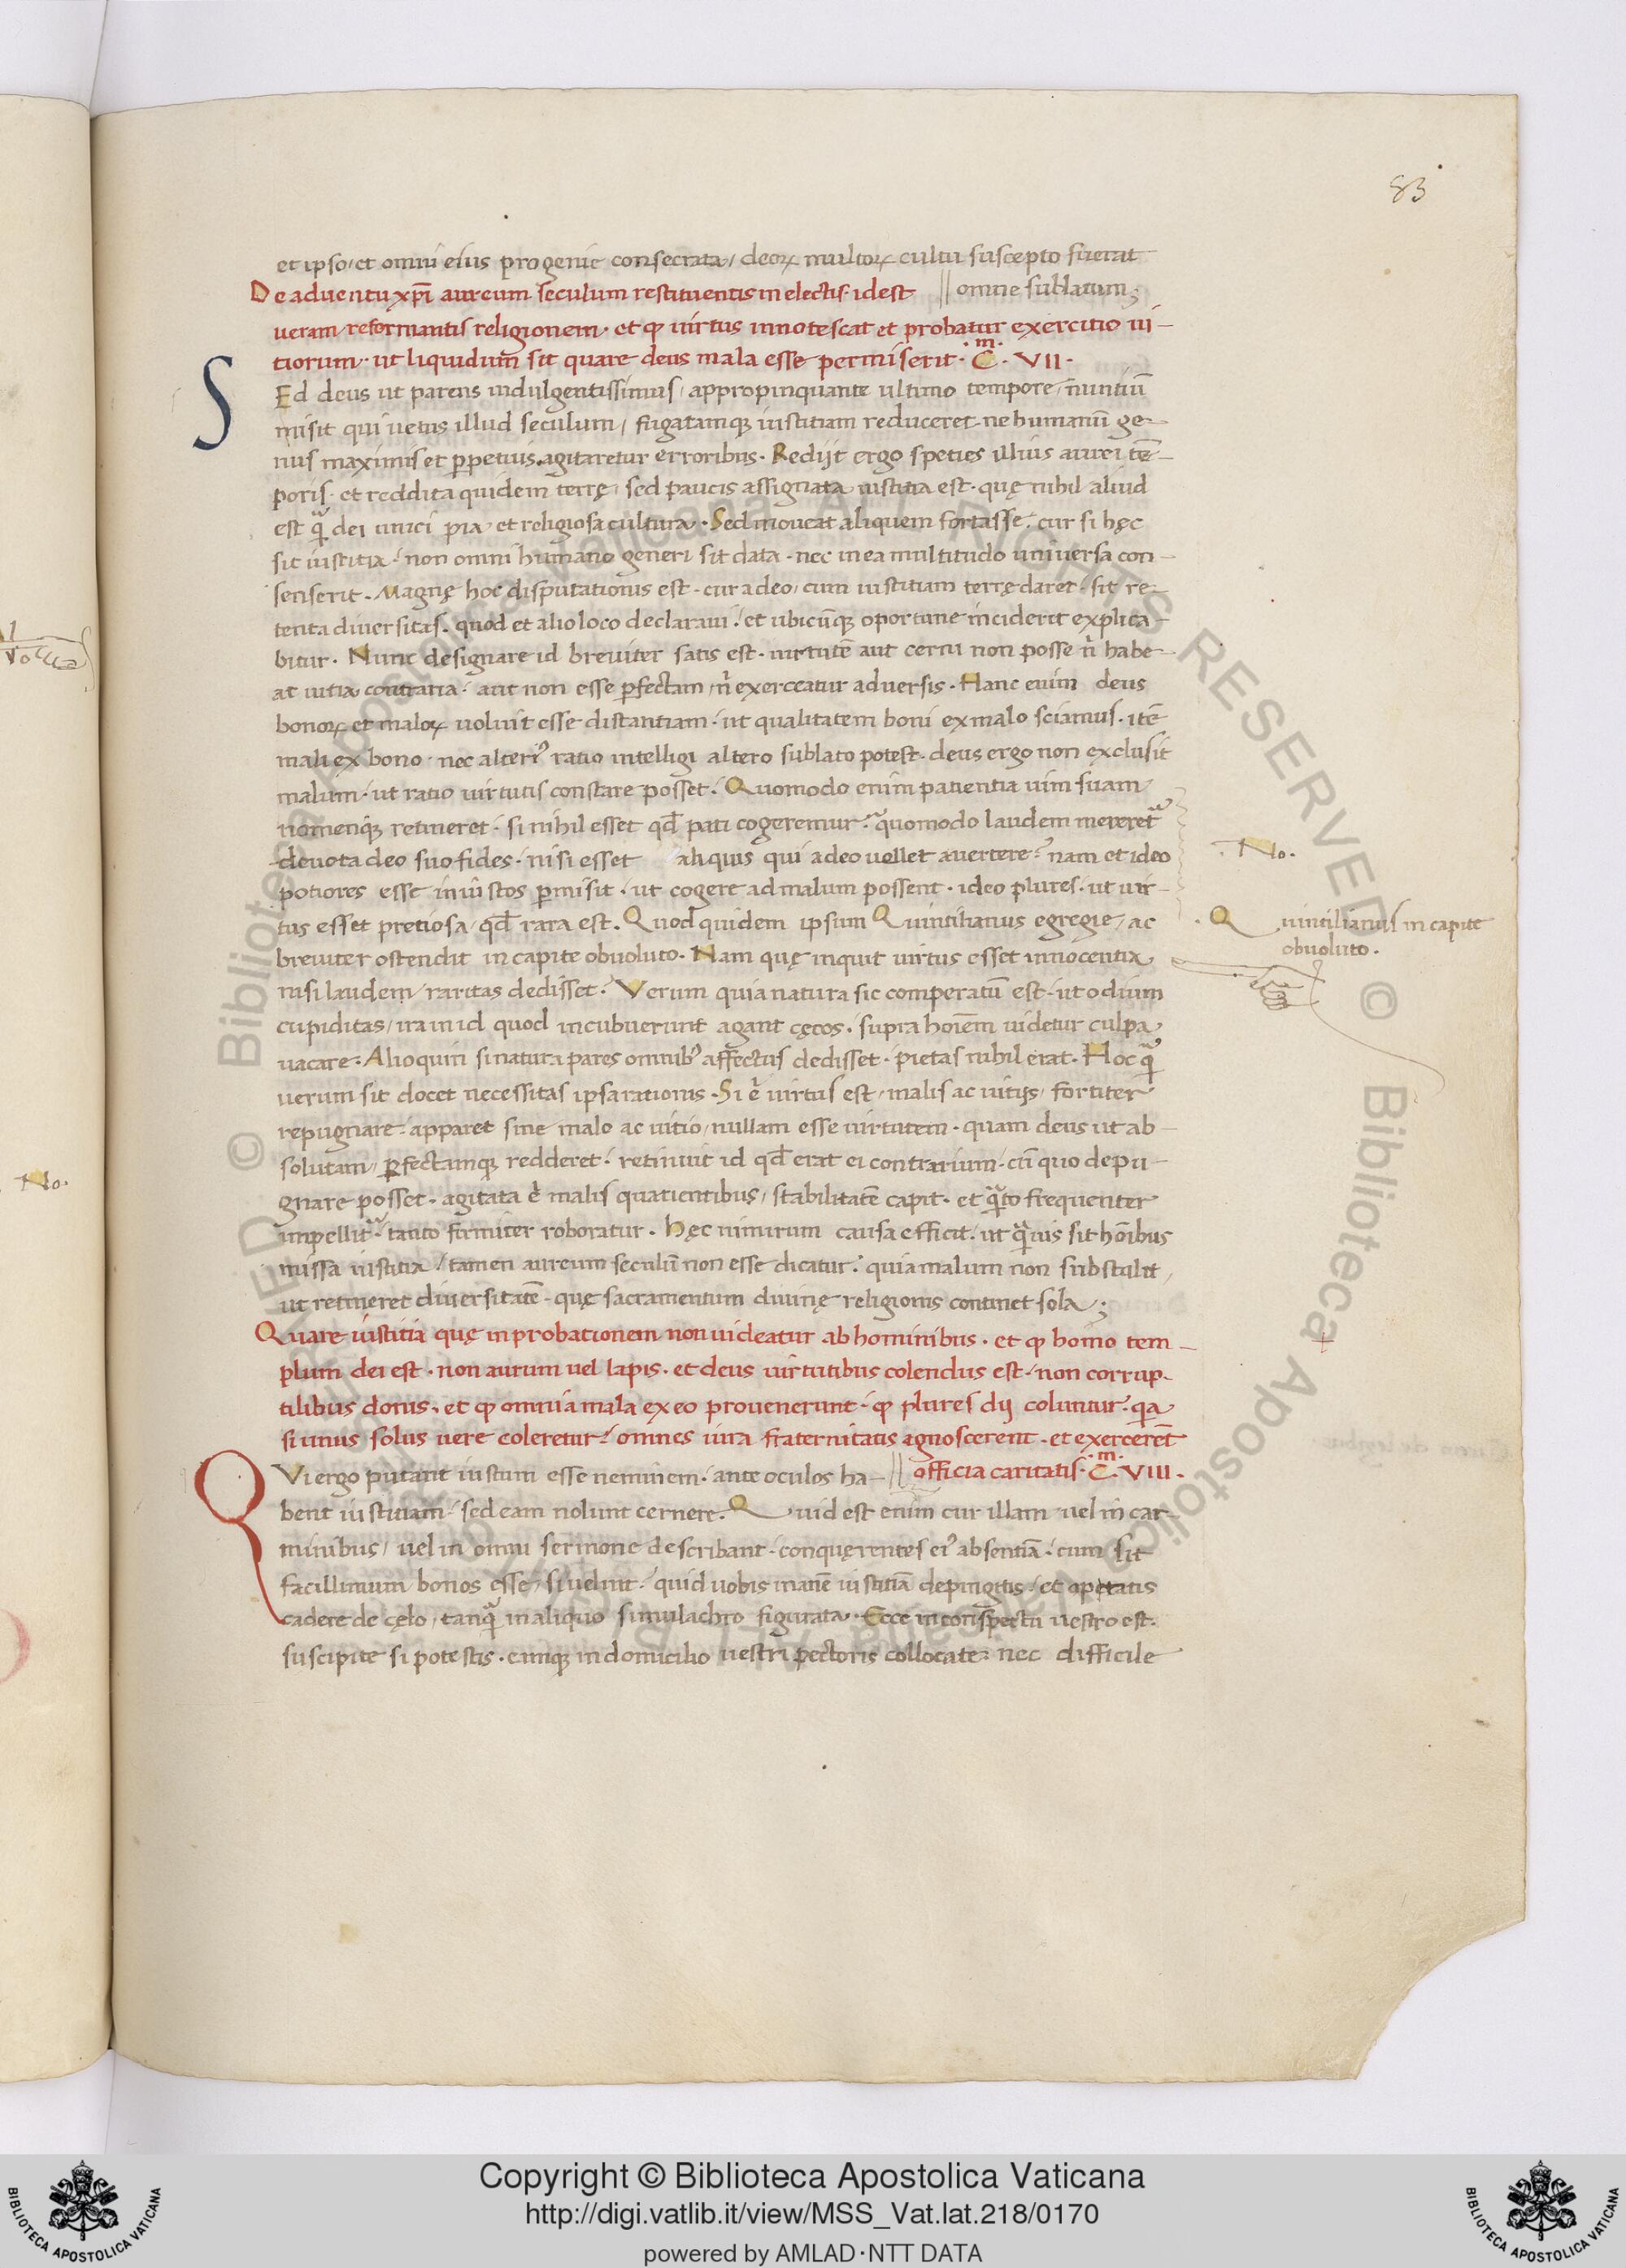 83
et ipso, et omni eius progenie consecrata, deoꝝ multoꝝ cultu suscepto fuerat
omne sublatum;
De aduentu xp̄i aureum seculum restituentis in electis· idest
ueram reformantis religionem· et ꝙ uirtus innotescat et probatur exercitio ui-
tiorum· ut liquidum sit quare deus mala esse permiserit· C̄.ᵐ VII·
SEd deus ut parens indulgentissimus, appropinquante ultimo tempore, nuntiū
misit qui uetus illud seculum, fugatamqꝫ iustitiam reduceret· ne humanū ge-
nus maximis et ꝑpetuis agitaretur erroribus· Redijt ergo speties illius aurei tē-
poris· et reddita quidem terrę, sed paucis assignata iustitia est· quę nihil aliud
est q̄ᵃ dei unici pia, et religiosa cultura· Sed moueat aliquem fortasse, cur si hęc
sit iustitia, non omni humano generi sit data· nec in ea multitudo uniuersa con-
senserit· Magnę hoc disputationis est· cur a deo, cum iustitiam terrę daret· sit re-
tenta diuersitas· quod et alio loco declaraui, et ubicūqꝫ oportune inciderit explica-
bitur· Nunc designare id breuiter satis est· uirtutē aut cerni non posse n̄ habe-
at uitia contraria, aut non esse ꝑfectam, n̄ exerceatur aduersis· Hanc enim deus
bonoꝝ et maloꝝ uoluit esse distantiam, ut qualitatem boni ex malo sciamus· itē
mali ex bono· nec alteriꝰ ratio intelligi altero sublato potest· deus ergo non exclusit
malum· ut ratio uirtutis constare posset· Quomodo enim patientia uim suam,
nomenqꝫ retineret· si nihil esset qd̄ pati cogeremur? quomodo laudem mereretᵃ
deuota deo suo fides· nisi esset aliquis qui a deo uellet auertere? nam et ideo
potiores esse iniustos ꝑmisit, ut cogere ad malum possent· ideo plures· ut uir-
tus esset pretiosa, qd̄ rara est· Quod quidem ipsum Quintilianus egregie, ac
breuiter ostendit in capite obuoluto· Nam quę inquit uirtus esset innocentia,
nisi laudem, raritas dedisset? Verum quia natura sic comperatū est· ut odium
cupiditas, ira in id quod incubuerunt agant cęcos· supra hoīem uidetur culpa
uacare· Alioquin si natura pares omnibꝰ affectus dedisset· pietas nihil erat· Hoc q̄ᵃ
uerum sit docet necessitas ipsa rationis· Si .n. uirtus est, malis ac uitijs, fortiter
repugnare· apparet sine malo ac uitio, nullam esse uirtutem· quam deus ut ab-
solutam, ꝑfectamqꝫ redderet· retinuit id qd̄ erat ei contrarium· cū quo depu-
gnare posset· agitata .n. malis quatientibus, stabilitatē capit· et q̄ᵃto frequenter
impellitᵃ· tanto firmiter roboratur· Hęc nimirum causa efficit, ut q̄ᵃuis sit hōibus
missa iustitia, tamen aureum seculū non esse dicatur· quia malum non substulit,
ut retineret diuersitatē· quę sacramentum diuinę religionis continet sola;
Quare iustitia quę in probationem non uideatur ab hominibus· et ꝙ homo tem-
plum dei est· non aurum uel lapis· et deus uirtutibus colendus est, non corrup-
tilibus donis· et ꝙ omnia mala ex eo prouenerunt, ꝙ plures dij coluntur, qꝛ
si unus solus uere coleretur, omnes iura fraternitatis agnoscerent· et exercerēt
officia caritatis· C̄.ᵐ VIII·
QVi ergo putant iustum esse neminem· ante oculos ha-
bent iustitiam, sed eam nolunt cernere· Quid est enim cur illam, uel in car-
minibus, uel in omni sermone describant· conquęrentes eiꝰ absentiā· cum sit
facillimum bonos esse, si uelint? quid uobis inanē iustitiā depingitis, et opetatis
cadere de cęlo, tanq̄ᵃ in aliquo simulachro figurata· Ecce in conspectu uestro est·
suscipite si potestis· eamqꝫ in domicilio uestri pectoris collocate· nec difficile
No.
Quintilianus in capite
obuoluto.
No.
Copyright © Biblioteca Apostolica Vaticana
http://digi.vatlib.it/view/MSS_Vat.lat.218/0170
powered by AMLAD·NTT DATA
BIBLIOTECA APOSTOLICA VATICANA
BIBLIOTECA APOSTOLICA VATICANA